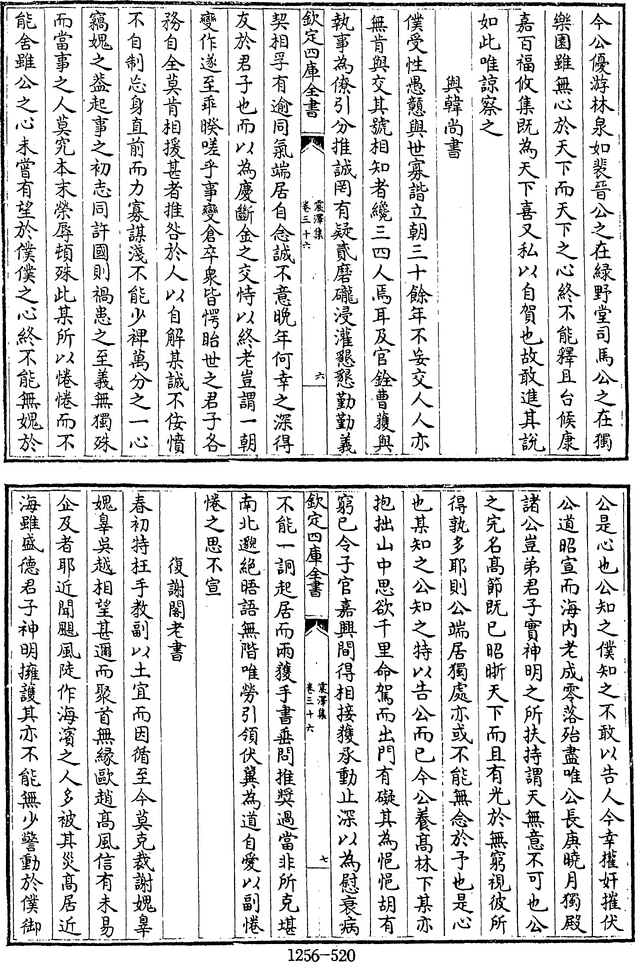 今公優游林泉如裴晉公之在緑野堂司馬公之在獨
樂園雖無心於天下而天下之心終不能釋且台候康
嘉百福攸集既為天下喜又私以自賀也故敢進其說
如此唯諒察之
與韓尚書
僕受性愚戇與世寡諧立朝三十餘年不妄交人人亦
無肯與交其號相知者纔三四人焉耳及官銓曹獲與
執事為僚引分推誠罔有疑貳磨礲浸灌懇懇勤勤義
欽定四庫全書
震澤集
卷三十六
六
契相孚有逾同氣端居自念誠不意晚年何幸之深得
友於君子也而以為慶斷金之交恃以終老豈謂一朝
變作遂至乖睽嗟乎事變倉卒衆皆愕眙世之君子各
務自全莫肯相援甚者推咎於人以自解某誠不佞憤
不自制忘身直前而力寡謀淺不能少裨萬分之一心
竊媿之葢起事之初志同許國則禍患之至義無獨殊
而當事之人莫究本末榮辱頓殊此某所以惓惓而不
能舍雖公之心未嘗有望於僕僕之心終不能無媿於
公是心也公知之僕知之不敢以告人今幸權奸摧伏
公道昭宣而海内老成零落殆盡唯公長庚曉月獨殿
諸公豈弟君子實神明之所扶持謂天無意不可也公
之完名高節既已昭晣天下而且有光於無窮視彼所
得孰多耶則公端居獨處亦或不能無念於予也是心
也某知之公知之特以告公而已今公養高林下某亦
抱拙山中思欲千里命駕而出門有礙其為悒悒胡有
窮已令子官嘉興間得相接獲承動止深以為慰衰病
欽定四庫全書
震澤集
卷三十六
七
不能一詗起居而兩獲手書垂問推奬過當非所克堪
南北邈絕晤語無階唯勞引領伏冀為道自愛以副惓
惓之思不宣
復謝閣老書
春初特枉手教副以土宜而因循至今莫克裁謝媿辠
媿辠吳越相望甚邇而聚首無緣歐趙高風信有未易
企及者耶近聞颶風陡作海濱之人多被其災高居近
海雖盛德君子神明擁護其亦不能無少警動於僕御
1256-520